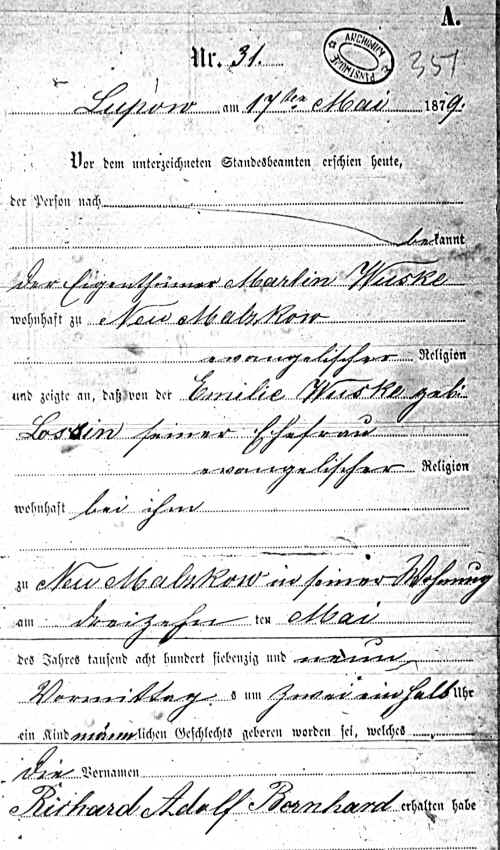 A.
Nr. 31.
ARCHIWUM
351
Lupow am 17ten Mai 1879.
Vor dem unterzeichneten Standesbeamten erschien heute,
der Person nach
bekannt
der Eigenthümer Martin Wuske
wohnhaft zu Neu Malzkow
evangelischer Religion
und zeigte an, daß von der Emilie Wuske geb.
Lossin seiner Ehefrau
evangelischer Religion
wohnhaft bei ihm
zu Neu Malzkow in seiner Wohnung
am dreizehn ten Mai
des Jahres tausend acht hundert siebenzig und neun
Vormittag s um zwei ein halb Uhr
ein Kind männlichen Geschlechts geboren worden sei, welches
die Vornamen
Richard Adolf Bernhard erhalten habe